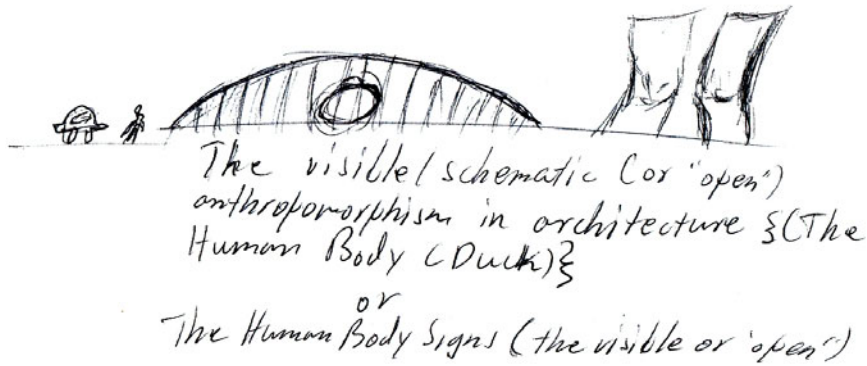 The visible (schematic (or "open")
anthropomorphism in architecture {(The
Human Body (Duck)}
or
The Human Body Signs (the visible or "open")